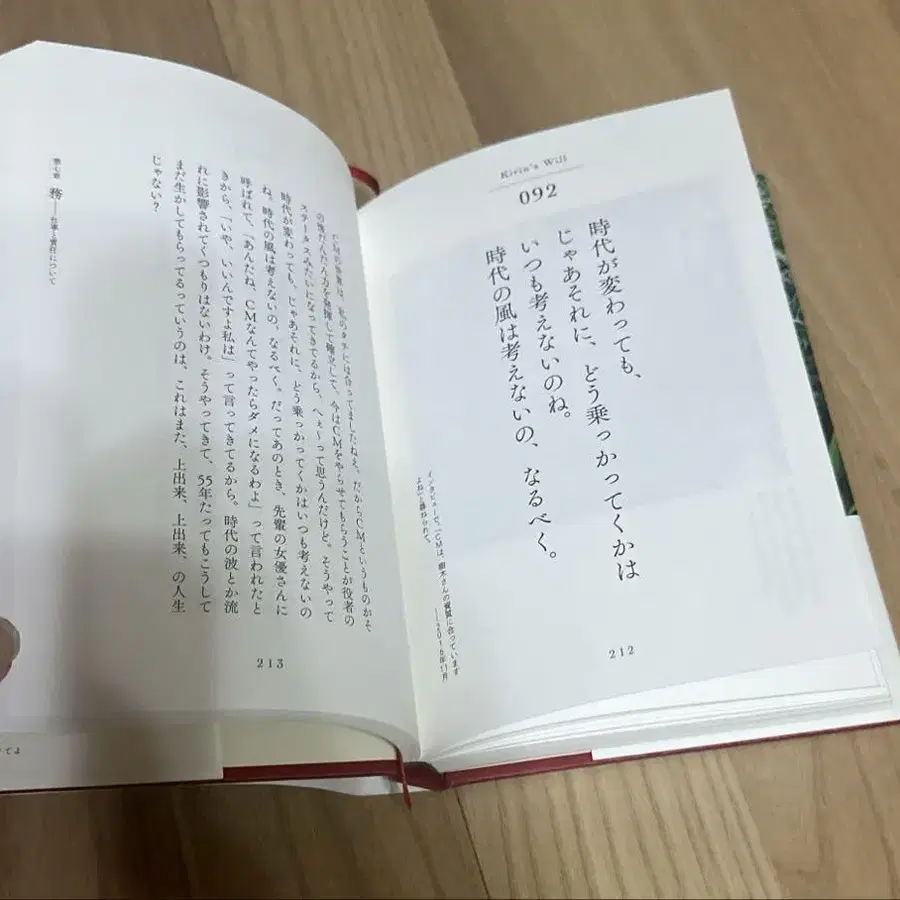 Kirin's Will
092
時代が変わっても、
じゃあそれに、どう乗っかってくかは
いつも考えないのね。
時代の風は考えないの、なるべく。
インタビューで、「CMは、樹木さんの資質に合っています
よね」と尋ねられて。
——2016年11月
212
CMの世界は、私のタチには合ってましたねぇ。だからCMというものがそ
の後だんだん力を発揮して確立して、今はCMをやらせてもらうことが役者の
ステータスみたいになってきてるから、へぇ〜って思うんだけど。そうやって
時代が変わっても、じゃあそれに、どう乗っかってくかはいつも考えないの
ね。時代の風は考えないの、なるべく。だってあのとき、先輩の女優さんに
呼ばれて、「あんたね、CMなんてやったらダメになるわよ」って言われたと
きから、「いや、いいんですよ私は」って言ってきてるから。時代の波とか流
れに影響されてくつもりはないわけ。そうやってきて、55年たってもこうして
まだ生かしてもらってるっていうのは、これはまた、上出来、上出来、の人生
じゃない？
第七章 務——仕事と責任について
213